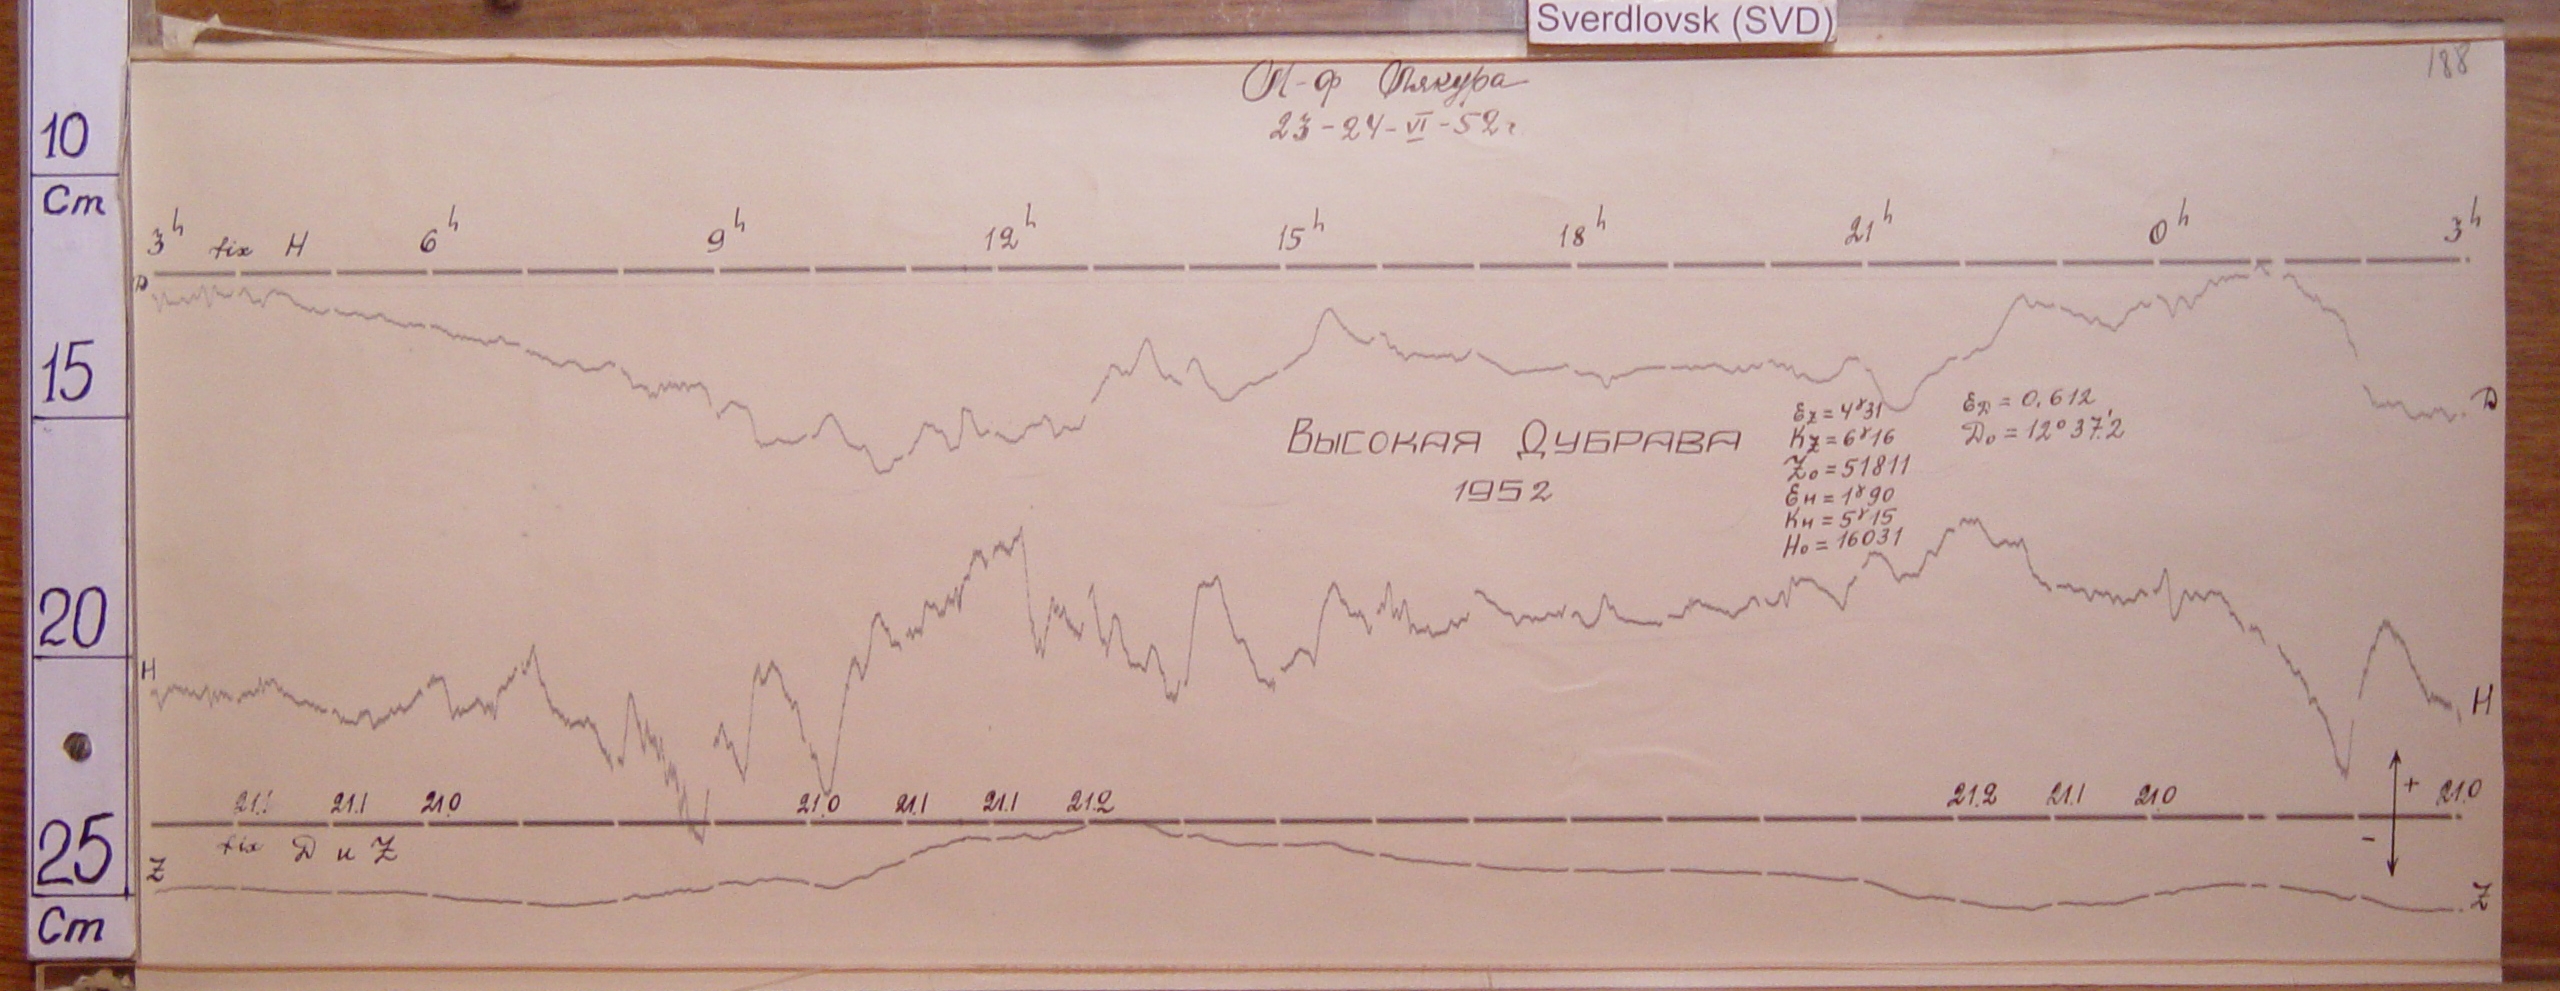 Sverdlovsk (SVD)
188
М-ф
23-24-VI-52г.
10
Cm
15
20
25
Cm
3h fix H 6h 9h 12h 15h 18h 21h 0h 3h
Д
Д
ВЫСОКАЯ ДУБРАВА
1952
Ez = 4γ31
Kz = 6γ16
Z₀ = 51811
Eн = 1γ90
Kн = 5γ15
H₀ = 16031
EД = 0.612
Д₀ = 12°37.'2
H
H
21.1 21.1 21.0 21.0 21.1 21.1 21.2 21.2 21.1 21.0 21.0
+
-
fix Д и Z
Z
Z